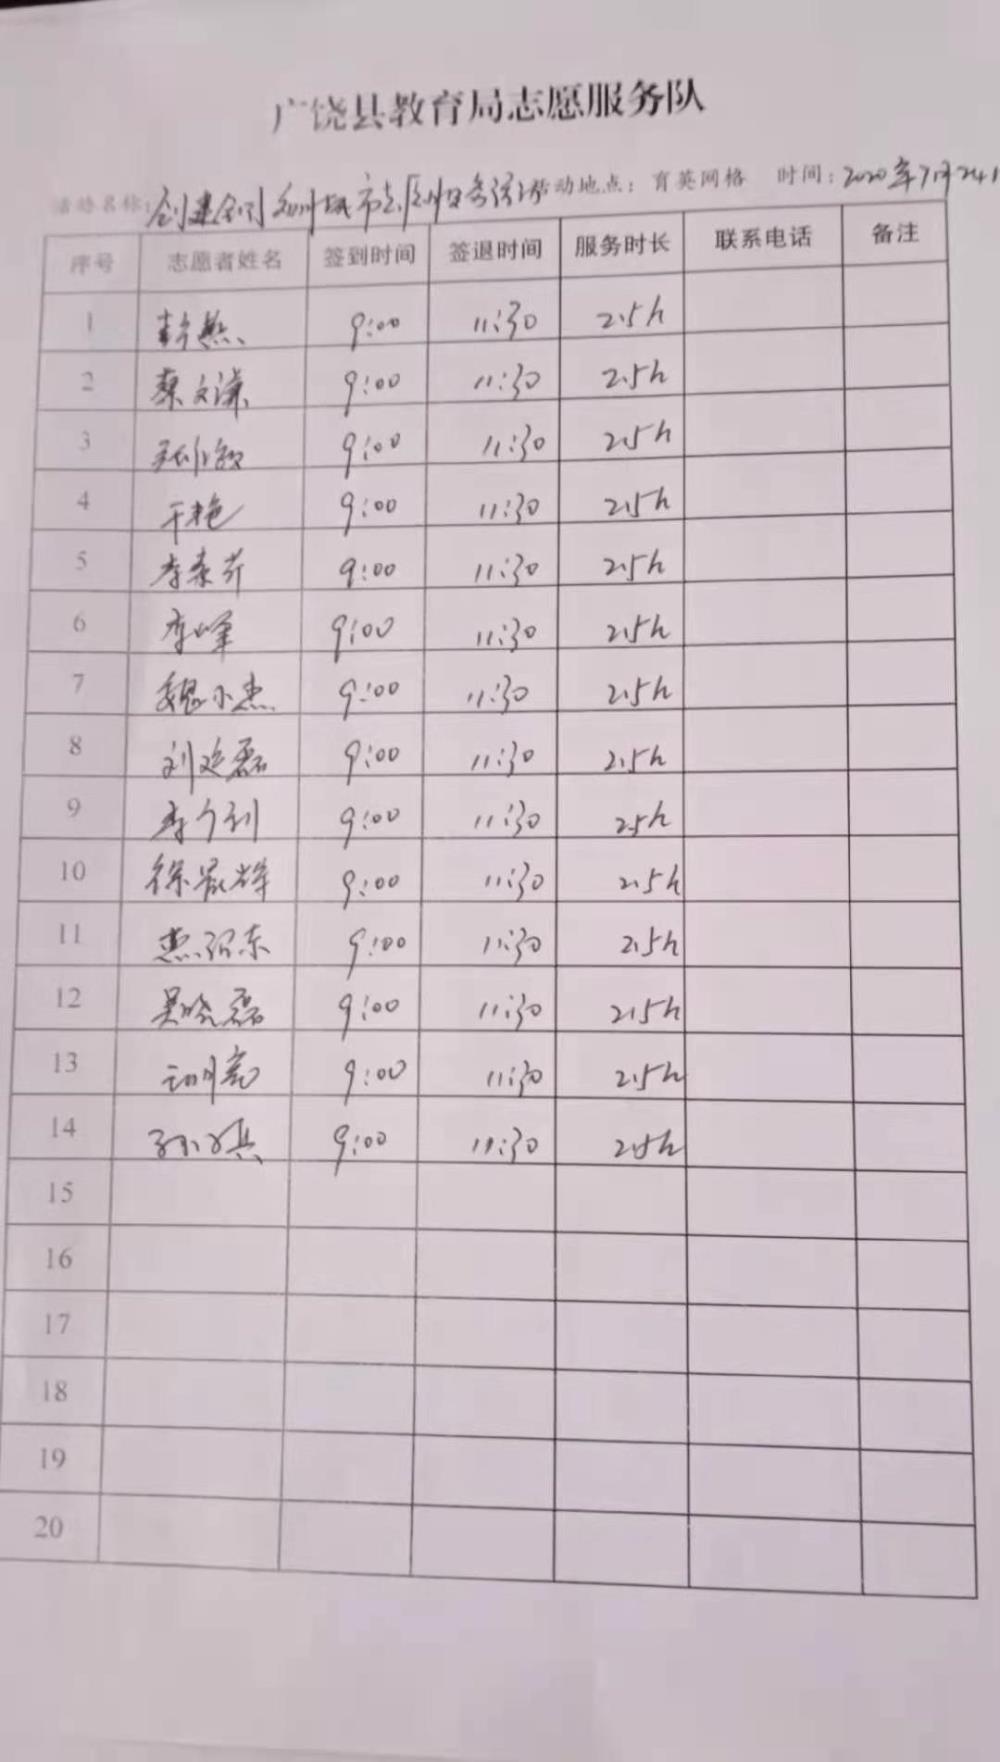 广饶县教育局志愿服务队
活动名称：创建全国文明城市志愿服务活动 活动地点：育英网格 时间：2020年7月24日
序号 志愿者姓名 签到时间 签退时间 服务时长 联系电话 备注
1 9:00 11:30 2.5h
2 蔡文谦 9:00 11:30 2.5h
3 9:00 11:30 2.5h
4 于艳 9:00 11:30 2.5h
5 李素芹 9:00 11:30 2.5h
6 李峰 9:00 11:30 2.5h
7 魏小杰 9:00 11:30 2.5h
8 刘延磊 9:00 11:30 2.5h
9 9:00 11:30 2.5h
10 9:00 11:30 2.5h
11 9:00 11:30 2.5h
12 吴晓磊 9:00 11:30 2.5h
13 9:00 11:30 2.5h
14 9:00 11:30 2.5h
15
16
17
18
19
20